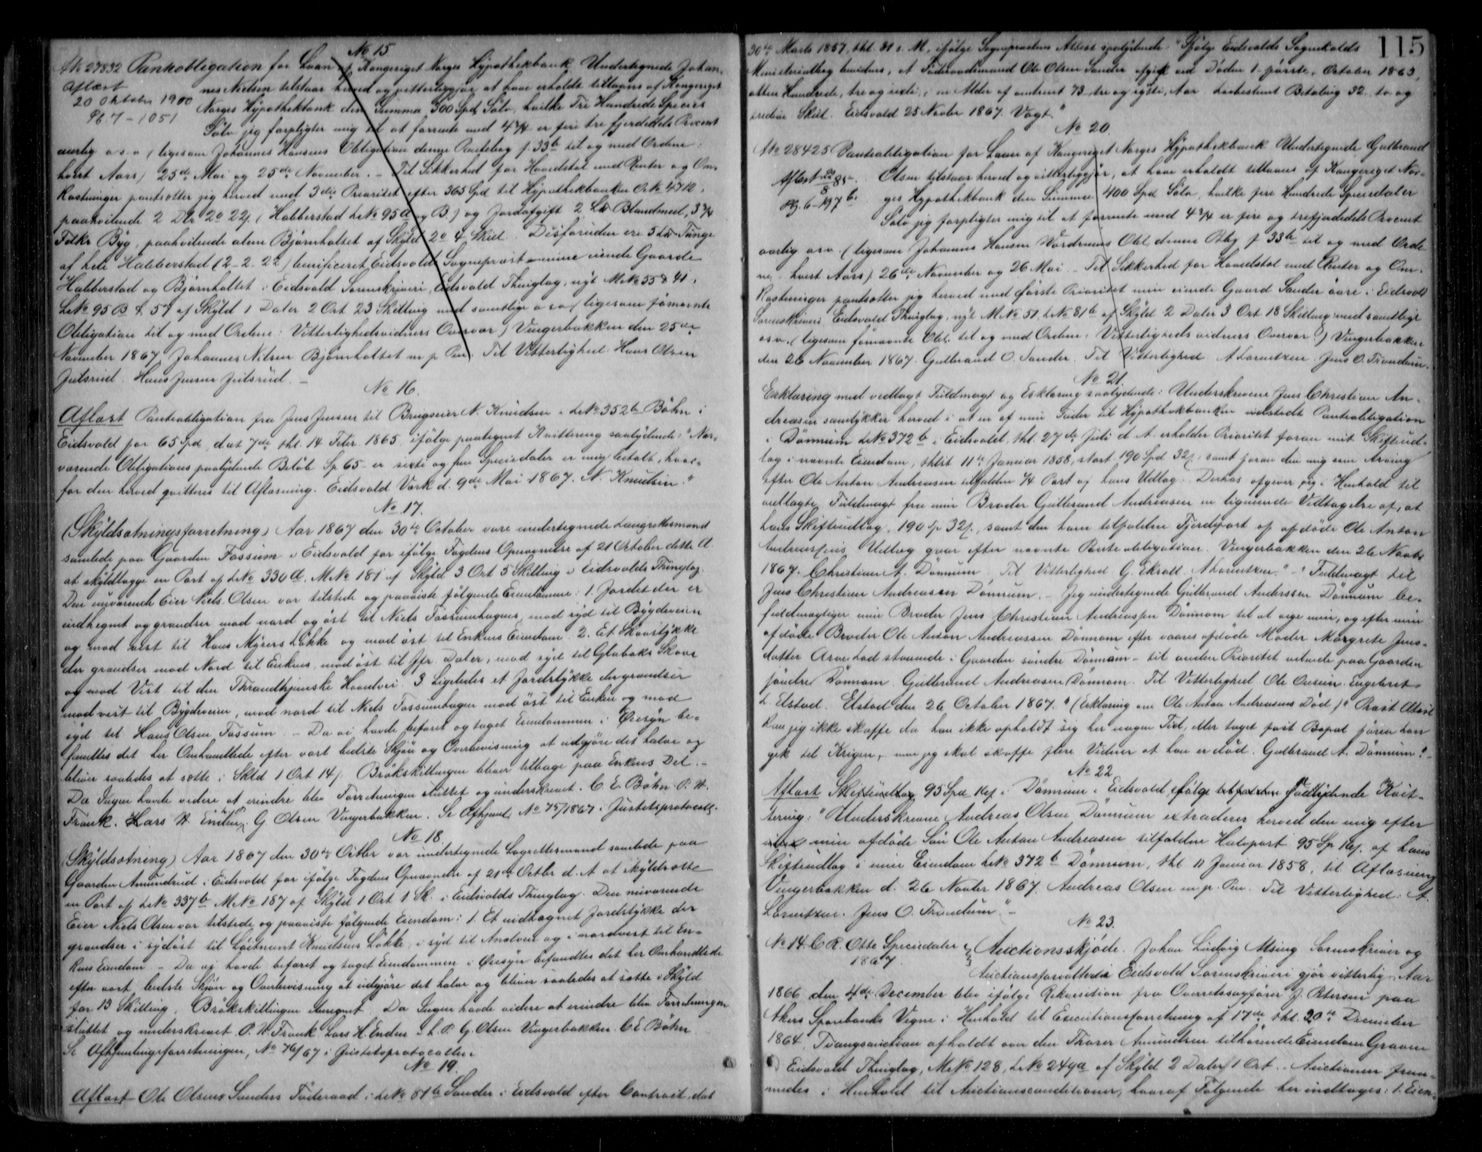 No 15
No 27832 Panteobligation for Laan af Kongeriget Norges Hypothekbank. Undertegnede Johan-
Aflæst
20 Oktober 1900
967-1051
nes Nielsen tilstaar herved og vitterliggjør, at have erholdt tillaans af Kongeriget
Norges Hypothekbank den Summa 300 Spd Sølv, hvilke Tre Hundrede Species
Sølv jeg forpligter mig til at forrente med 4¾ er fire tre fjerdedels Procent
aarlig o.s.v. (ligesom Johannes Hansens Obligation denne Pantebog p. 33b til og med Ordene:
hvert Aars) 25de Mai og 25de November. – Til Sikkerhed for Hovedstol med Renter og Om-
kostninger pantsætter jeg herved med 3die Prioritet efter 365 Spd til Hypothekbanken
paahvilende 2 Dr 2 O 22 (Habberstad LNo 95 a og B) og Jordafgift 2 Blandmel, 3¾
Byg, paahvilende alene Bjørnholtet af Skyld 2 O 4 Skill.
af hele Habberstad (2-2-22) beneficeret Eidsvolds Sognepræst mine eiende Gaarde
Habberstad og Bjørnholtet i Eidsvold Sorenskriveri, Eidsvold Thinglag, nyt MNo 55 & 41,
LNo 95 B & 57 af Skyld 1 Daler 2 Ort 23 Skilling med samtlige o.s.v. (ligesom førnævnte
Obligation til og med Ordene: Vitterlighedsvidners Overvær) Vingerbakken den 25de
November 1867. Johannes Nilsen Bjørnholtet m. p. Pen. Til Vitterlighed Hans Olsen
Julsrud. Hans Jensen Julsrud. –
No 16.
Aflæst Panteobligation fra Jens Jensen til Brugseier N. Knudsen i LNo 352b Bøhn i
Eidsvold for 65 Spd dat 7de thl. 14 Febr 1865 ifølge paategnet Kvittering saalydende: "Nær-
værende Obligations paalydende Beløb Sp 65 er sexti og fem Speciedaler er mig betalt, hvor-
for den herved qvitteres til Aflæsning. Eidsvold Værk d. 9de Mai 1867. N. Knudsen."
No 17.
(Skyldsætningsforretning) Aar 1867 den 30te October vare undertegnede Laugrettesmænd
samlede paa Gaarden Fossum i Eidsvold for ifølge Fogdens Opnævnelse af 21 October dette A.
at skyldlægge en Part af LNo 330 a. MNo 181 af Skyld 3 Ort 5 Skilling i Eidsvolds Thinglag.
Den nuværende Eier Niels Olsen var tilstede og paaviste følgende Eiendomme: 1. Jordet der er
indhegnet og grændser mod nord og øst til Niels Fossumhagen, mod syd til Bygdeveien
og mod vest til Hans Myrers Løkke og mod øst til Enkens Eiendom. 2. Et Skovstykke
der grændser mod Nord til Enken, mod øst til Pfr. Daler, mod syd til Globaks Skov
og mod Vest til den Throndhjemske Hovedvei. 3 Ligeledes et Jordstykke der grændser
mod vest til Bygdeveien, mod nord til Niels Fossumhagen mod øst til Enken og mod
syd til Hans Olsen Fossum – Da vi havde befaret og taget Eiendommen i Øiesyn be-
fandtes det her Omhandlede efter vort bedste Skjøn og Overbevisning at udgjøre det halve og
bliver saaledes at sætte i Skyld 1 Ort 14 /. Brøkskillingen bliver tilbage paa Enkens Del. –
Da Ingen havde videre at erindre blev Forretningen sluttet og underskrevet. C. E. Bøhn O. H.
Frank. Lars H. Enden. G. Olsen Vingerbakken. Se Afhjeml. No 75/1867 i Justitsprotocoll.
No 18.
(Skyldsætning) Aar 1867 den 30te Octbr var undertegnede Laugrettesmænd samlede paa
Gaarden Amundrud i Eidsvold for ifølge Fogdens Opnævnelse af 21de Octbr d. A. at skyldsætte
en Part af LNo 337b MNo 187 af Skyld 1 Ort 1 Sk. i Eidsvolds Thinglag. Den nuværende
Eier Niels Olsen var tilstede og paaviste følgende Eiendom: 1. Et indhegnet Jordstykke der
grændser i sydøst til Løitnant Knudsens Løkke, i syd til Andelven og i nordvest til En-
kens Eiendom – Da vi havde befaret og taget Eiendommen i Øiesyn befandtes det her Omhandlede
efter vort bedste Skjøn og Overbevisning at udgjøre det halve og bliver saaledes at sætte i Skyld
for 13 Skilling. Brøkskillingen iberegnet. Da Ingen havde videre at erindre blev Forretningen
sluttet og underskrevet O. H. Frank Lars H. Enden G. Olsen Vingerbakken C E Bøhn
Se Afhjemlingsforretningen, No 76/67 i Justitsprotocollen
No 19.
Aflæst Ole Olsens Sanders Føderaad i LNo 81b Sander i Eidsvold efter Contract, dat
115
30te Marts 1857, thl. 31 s. M. ifølge Sognepræstens Attest saalydende: "Ifølge Eidsvolds Sognekalds
Ministerialbog bevidnes, at Føderaadsmand Ole Olsen Sander afgik ved Døden 1 første October 1863,
atten Hundrede, tre og sexti, i en Alder af omtrent 73 tre og sytti, Aar. Indestemt Betaling 32 to og
tredive Skill. Eidsvold 25 Novbr 1867. Vogt."
No 20.
No 28425 Panteobligation for Laan af Kongeriget Norges Hypothekbank. Undertegnede Gulbrand
Olsen tilstaar herved og vitterliggjør, at have erholdt tillaans af Kongeriget Nor-
ges Hypothekbank den Summa 400 Spd Sølv, hvilke fire Hundrede Speciedaler
Sølv jeg forpligter mig til at forrente med 4¾ er fire og trefjerdedels Procent
aarlig o.s.v. (ligesom Johannes Hansen Obl. denne Ptbg p. 33b til og med Orde-
ne: hvert Aars) 26de November og 26 Mai – Til Sikkerhed for Hovedstol med Renter og Om-
kostninger pantsætter jeg herved med Første Prioritet min eiende Gaard Sander øvre i Eidsvold
Sorenskriveri Eidsvold Thinglag, nyt MNo 51, LNo 81b af Skyld 2 Daler 3 Ort 18 Skilling med samtlige
o.s.v. (ligesom førnævnte Obl. til og med Ordene: Vitterligheds vidners Overvær) Vingerbakken
den 26 November 1867. Gulbrand O. Sander. Til Vitterlighed A Lorentzen. Jens O. Trondum.
No 21.
Erklæring med vedlagt Fuldmagt og Erklæring saalydende: "Underskrevne Jens Christian An-
dreasen samtykker herved i at en af min Fader til Hypothekbanken udstedt Panteobligation
i Dønnum LNo 372b i Eidsvold, thl. 27de Juli d. A. erholder Prioritet foran mit Skifteud-
læg i nævnte Eiendom, thlst 11te Januar 1858, stort 190 Spd 32/, samt foran den mig som Arving
efter Ole Anton Andreassen tilfaldne ¼ Part af hans Udlæg. Derhos afgiver jeg i Henhold til
vedlagte Fuldmagt fra min Broder Gulbrand Andreasen en lignende Vedtagelse af, at
hans Skifteudlæg, 190 Sp 32/, samt den ham tilfaldne Fjerdepart af afdøde Ole Anton
Andreassens Udlæg gaar efter nævnte Panteobligation. Vingerbakken den 26 Novbr
1867. Christian A. Dønnum. Til Vitterlighed G. Ekroll. A Lorentzen." – "Fuldmagt til
Jens Christian Andreassen Dønnum. – Jeg undertegnede Gulbrand Andersen Dønnum be-
fuldmægtiger min Broder Jens Christian Andreassen Dønnum til at eie min, og efter min
afdøde Broder Ole Anton Andreassen Dønnum efter vores afdøde Moder Margrete Jens-
datter Arvelod staaende i Gaarden søndre Dønnum – til anden Prioritet
søndre Dønnum. Gulbrand Andreassen Dønnum. Til Vitterlighed Ole Engebret
L. Elstad. Elstad den 26 October 1867." (Erklæring om Ole Anton Andreassens Død.) "Præst Attest
kan jeg ikke skaffe da han ikke opholdt sig her nogen Tid, eller taget fast Bopæl førend han
gik til Krigen, men jeg skal skaffe flere Vidner at han er død. Gulbrand A. Dønnum." –
No 22
Aflæst Skifteudlæg 95 Spd 16/ i Dønnum i Eidsvold ifølge saalydende Kvit-
tering: "Underskrevne Andreas Olsen Dønnum extraderer herved den mig efter
min afdøde Søn Ole Anton Andreasen tilfaldne Halvpart 95 Sp 16/ af hans
Skifteudlæg i min Eiendom LNo 372b Dønnum, thl 11 Januar 1858, til Aflæsning
Vingerbakken d. 26 Novbr 1867 Andreas Olsen m. p. Pen. Til Vitterlighed: A.
Lorentzen. Jens O. Trondum". –
No 23.
No 14. C R. Otte Speciedaler
1867.
Auctionsskjøde. Johan Ludvig Alling Sorenskriver og
Auctionsforvalter i Eidsvold Sorenskriveri gjør vitterlig: Aar
1866 den 4de December blev ifølge Rekvisition fra Overretssagfører J. Petersen paa
Akers Sparebanks Vegne i Henhold til Executionsforretning af 17de thl. 20de December
1864 Tvangsauction afholdt over den Thorer Amundsen tilhørende Eiendom Graven
i Eidsvold Thinglag, MNo 128, LNo 249a af Skyld 2 Daler 1 Ort. Auctionen frem-
mødes i Henhold til Auctionsconditioner, hvoraf Følgende her indtages: 1. Eien-